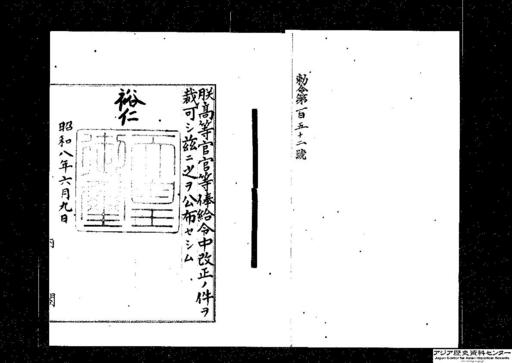 勅令第一百五十二號
朕高等官官等俸給令中改正ノ件ヲ
裁可シ茲ニ之ヲ公布セシム
裕仁
昭和八年六月九日
内閣
アジア歴史資料センター
Japan Center for Asian Historical Records